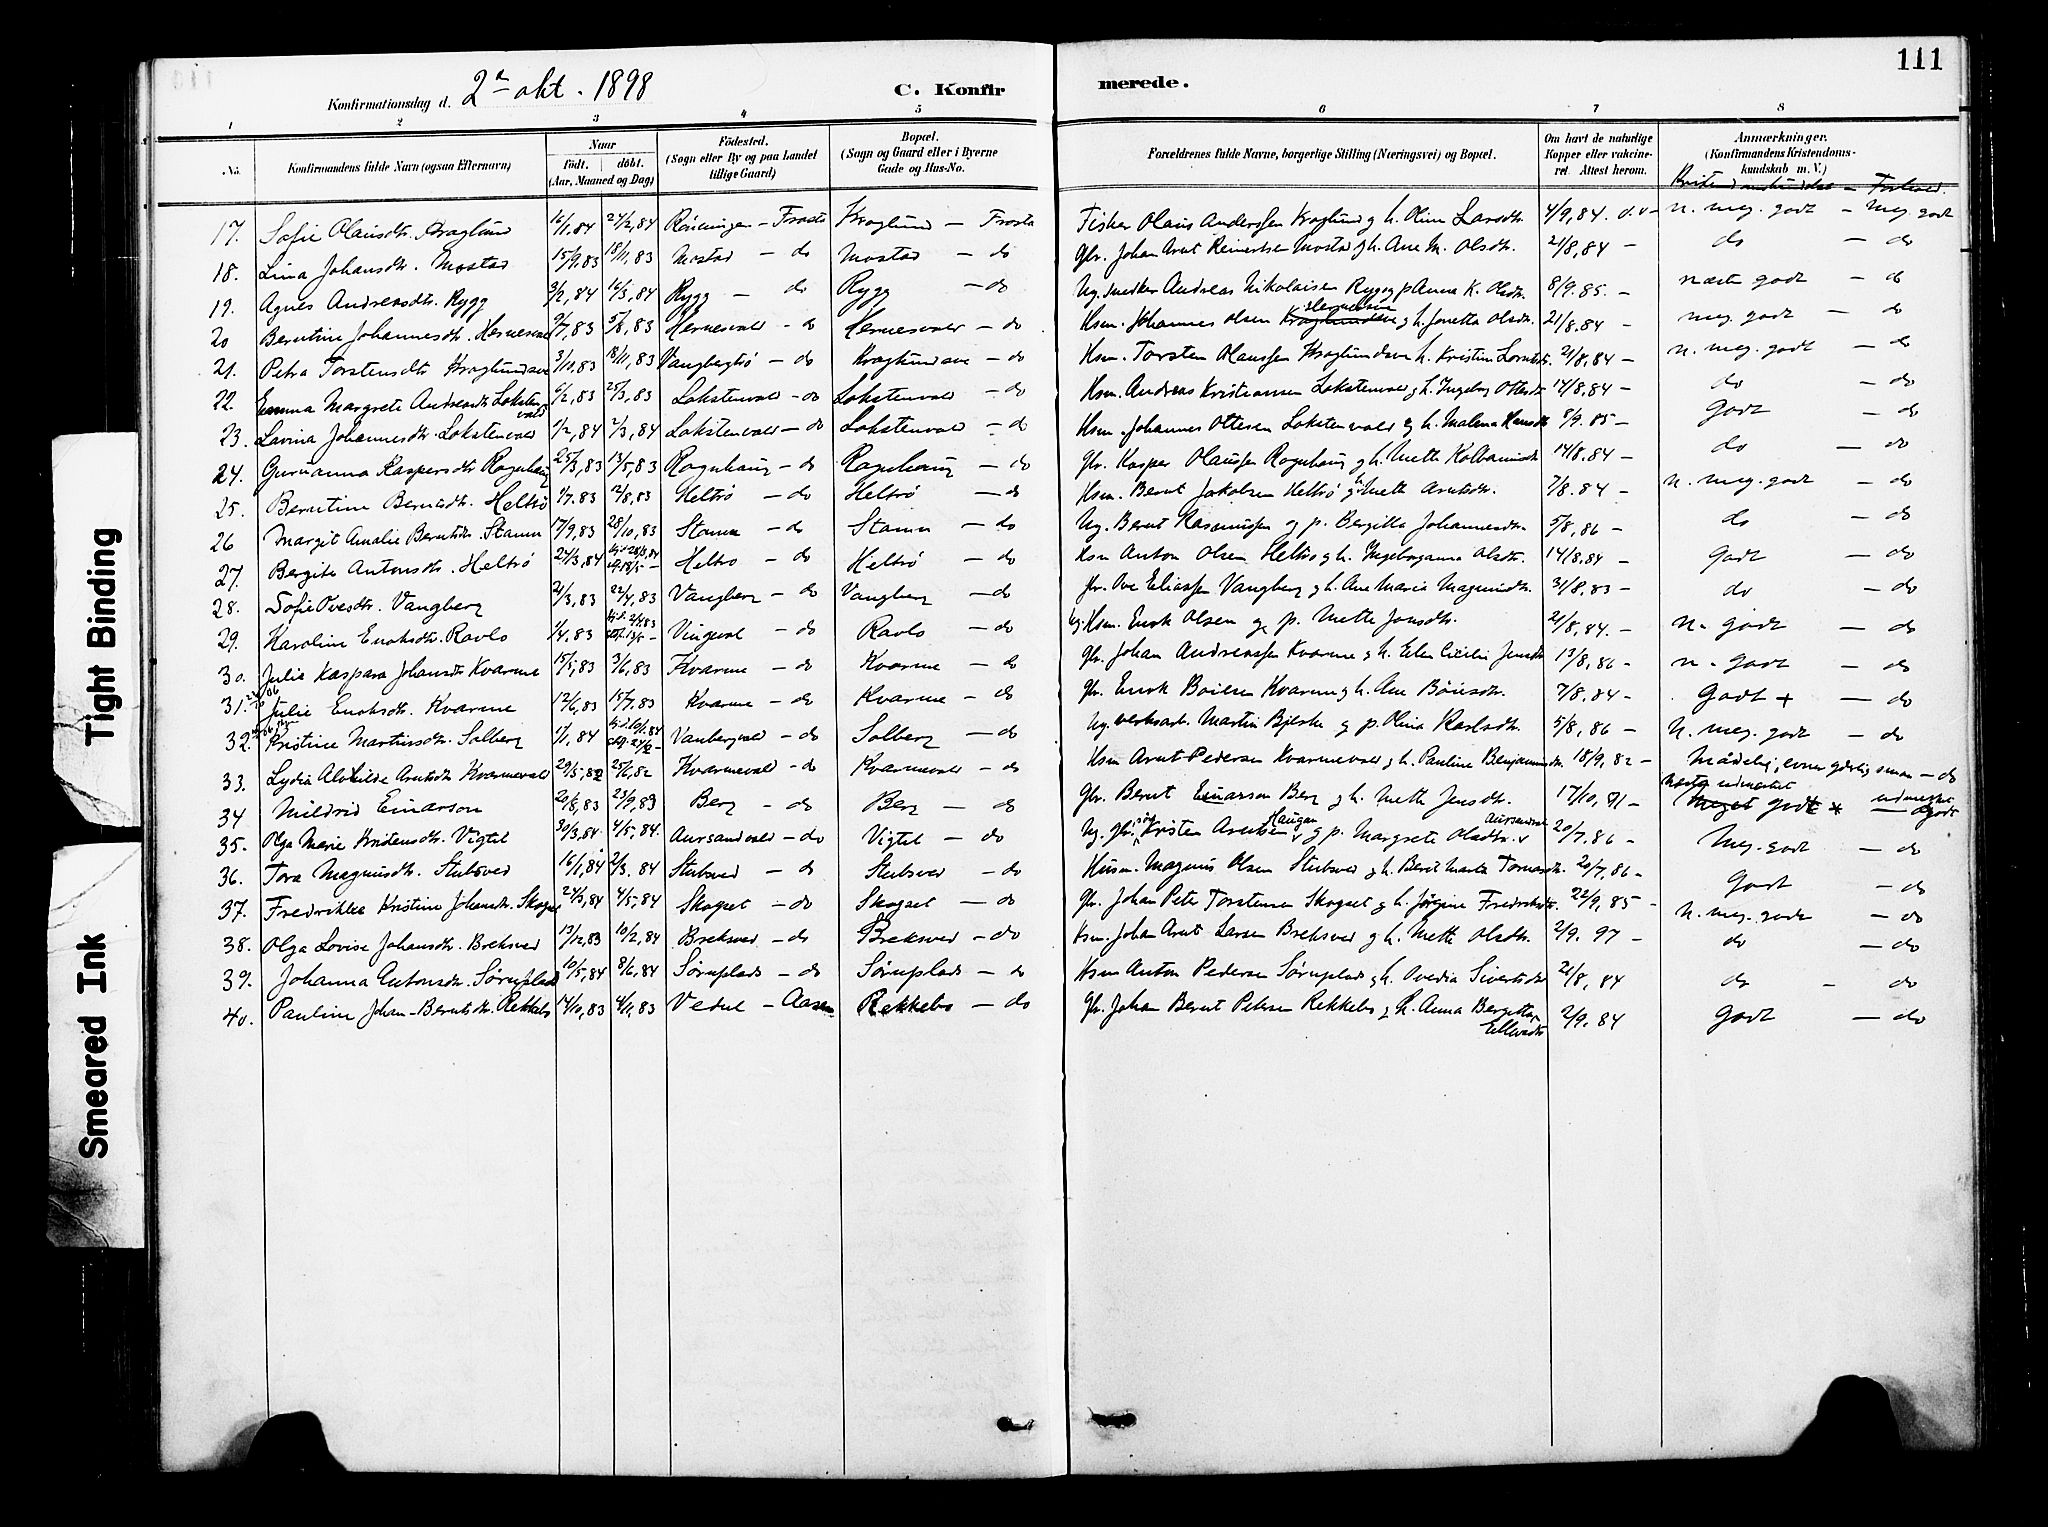 111
Konfirmationsdag d. 2den okt. 1898
C. Konfirmerede.
1 2 3 4 5 6 7 8
No.
Konfirmandens fulde Navn (ogsaa Efternavn)
Naar
födt. döbt.
(Aar, Maaned og Dag)
Födested.
(Sogn eller By og paa Landet
tillige Gaard)
Bopæl.
(Sogn og Gaard eller i Byerne
Gade og Hus-No.
Forældrenes fulde Navne, borgerlige Stilling (Næringsvei) og Bopæl.
Om havt de naturlige
Kopper eller vakcine-
ret. Attest herom.
Anmærkninger.
(Konfirmandens Kristendoms-
kundskab m. V.)
Kristendomskundskab — Forhold.
17. Sofie Olausdtr. Kraglund 16/1,84 24/2,84 — Frosta Kraglund — Frosta Fisker Olaus Anderssen Kraglund g h. Oline Larsdtr. 4/9,84. d.v— n. meg. godt — Meg godt
18. Lina Johansdtr. Mostad 15/9,83 18/11,83 Mostad — do Mostad — do Gbr. Johan Arnt Reinertsen Mostad g h. Ane M. Olsdtr. 21/8,84 — do — do
19. Agnes Andreasdtr. Rygg 3/2,84 16/3,84 Rygg — do Rygg — do Ug. snedker Andreas Nikolaisen Rygg g p Anna K. Olsdtr. 8/9.85. — næsten godt — do
20 Berntine Johannesdtr. Hernesvald 9/7,83 5/8,83 Hernesvald — do Hernesvald — do Hsm. Johannes Olsen Kraglundsve g h. Jonetta Olsdtr. 21/8,84 — meg. godt — do
21. Petra Torstensdtr Kraglundsve 3/10,83 18/11,83 Vangbergtrö — do Kraglundsve — do Hsm. Torsten Olaussen Kraglundsve h. Kristin 21/8,84 — n. meg. godt — do
22. Emma Margrete Andreasdtr. Lokstenvald 6/2,83 25/3,83 Lokstenvald — do Lokstenvald — do Hsm. Andreas Kristiansen Lokstenvald g h. Ingeborg Ottesdtr 14/8,84 — do — do
23. Lavina Johannesdtr. Lokstenvald 1/2,84 2/3,84 Lokstenvald — do Lokstenvald — do Hsm. Johannes Ottesen Lokstenvald g h. Malena Hansdtr 8/9.85 — Godt — do
24. Gurianna Kaspersdtr Rognhaug 25/3,83 13/5,83 Rognhaug — do Rognhaug — do Gbr. Kasper Olaussen Rognhaug g h. Mette 14/8.84 — do — do
25. Berntine Berntsdtr. Heltrö 1/7.83 12/8,83 Heltrö — do Heltrö — do Hsm. Bernt Jakobsen Heltrö g h Mette Arntsdtr. 7/8.84 — n. meg. godt — do
26 Margit Amalie Berntsdtr. Stamn 17/9,83 28/10,83 Stamn — do Stamn — do Ug. Bernt Rasmussen g p. Bergitta Johannesdtr. 5/8,86 — do — do
27. Bergitte Antonsdtr. Heltrö 24/3,84 Heltrö — do Heltrö — do Hsm Anton Olsen Heltrö g h. Ingeborganna Olsdtr. 14/8,84 — godt — do
28. Sofie Ovesdtr. Vangberg 21/3,83 22/4,83 Vangberg — do Vangberg — do Gbr. Ove Eliassen Vangberg g h. Ane Maria Magnusdtr. 31/8,83 — do — do
29. Karoline Enoksdtr. Ravlo 1/4,83 Vingeval — do Ravlo — do Ug. Hsm. Enok Olsen g p. Mette Jonsdtr. 21/8,84. — n. godt — do
30. Julie Kaspara Johansdtr Kvarme 15/5,83 3/6,83 Kvarme — do Kvarme — do Gbr. Johan Andreassen Kvarme g h. Elen Cecilie Jensdtr 13/8,86 — n. godt — do
31. Julie Enoksdtr. Kvarme 12/6,83 15/7.83 Kvarme — do Kvarme — do Gbr. Enok Boiesen Kvarme g h. Ane Böiesdtr. 7/8,84 — Godt + — do
32. Kristine Martinsdtr. Solberg 1/1,84 Vanbergvald — do Solberg — do Ug. verksarb. Martin Bjerke g p. Olina Karlsdtr. 5/8,86 — n. meg. godt — do
33. Lydia Alvhilde Arntsdtr Kvarmevald 29/5,82 25/6,82 Kvarmevald — do Kvarmevald — do Hsm Arnt Pedersen Kvarmevald g h. Pauline Benjaminsdtr. 18/9,82 — Mådelig, evner — do
34 Mildrid Einarson 20/8,83 23/9,83 Berg — do Berg — do Gbr. Bernt Einarson Berg g h. Mette Jensdtr. 17/10,81 — Meget godt * — godt
35. Olga Marie Kristensdtr. Vigtil 30/3,84. 4/5,84. Aursandvald — do Vigtil — do Ug. gbr.søn Kristen Arntsen Haugan g p. Margrete Olsdtr. Aursandvald 20/7.86 — Meg. godt — do
36. Tora Magnusdtr. Stubsved 16/1,84 2/3,84 Stubsved — do Stubsved — do Husm. Magnus Olsen Stubsved g h. Berit Marta Tomasdtr. 20/7,86 — Godt — do
37. Fredrikke Kristine Johansdtr. Skogset 24/3,84 4/5,84 Skogset — do Skogset — do Gbr. Johan Peter Torstensen Skogset g h. Jörgine Fredriksdtr. 22/9,85 — n. meg. godt — do
38. Olga Lovise Johansdtr. Breksved 13/12,83 10/2,84 Breksved — do Breksved — do Hsm. Johan Arnt Larsen Breksved g h. Mette Olsdtr. 2/9.97 — do — do
39. Johanna Antonsdtr. Sörnplads 10/5,84 8/6,84 Sörnplads — do Sörnplads — do Hsm Anton Pedersen Sörnplads g h. Ovedia Sivertsdtr 21/8,84 do — do
40. Pauline Johan-Berntsdtr. Rekkebo 14/10,83 4/11,83 Vedul — Aasen Rekkebo — do Gbr. Johan Bernt Petersen Rekkebo g h. Anna Bergitta Ellevsdtr 2/9,84 Godt — do
Tight Binding
Smeared Ink